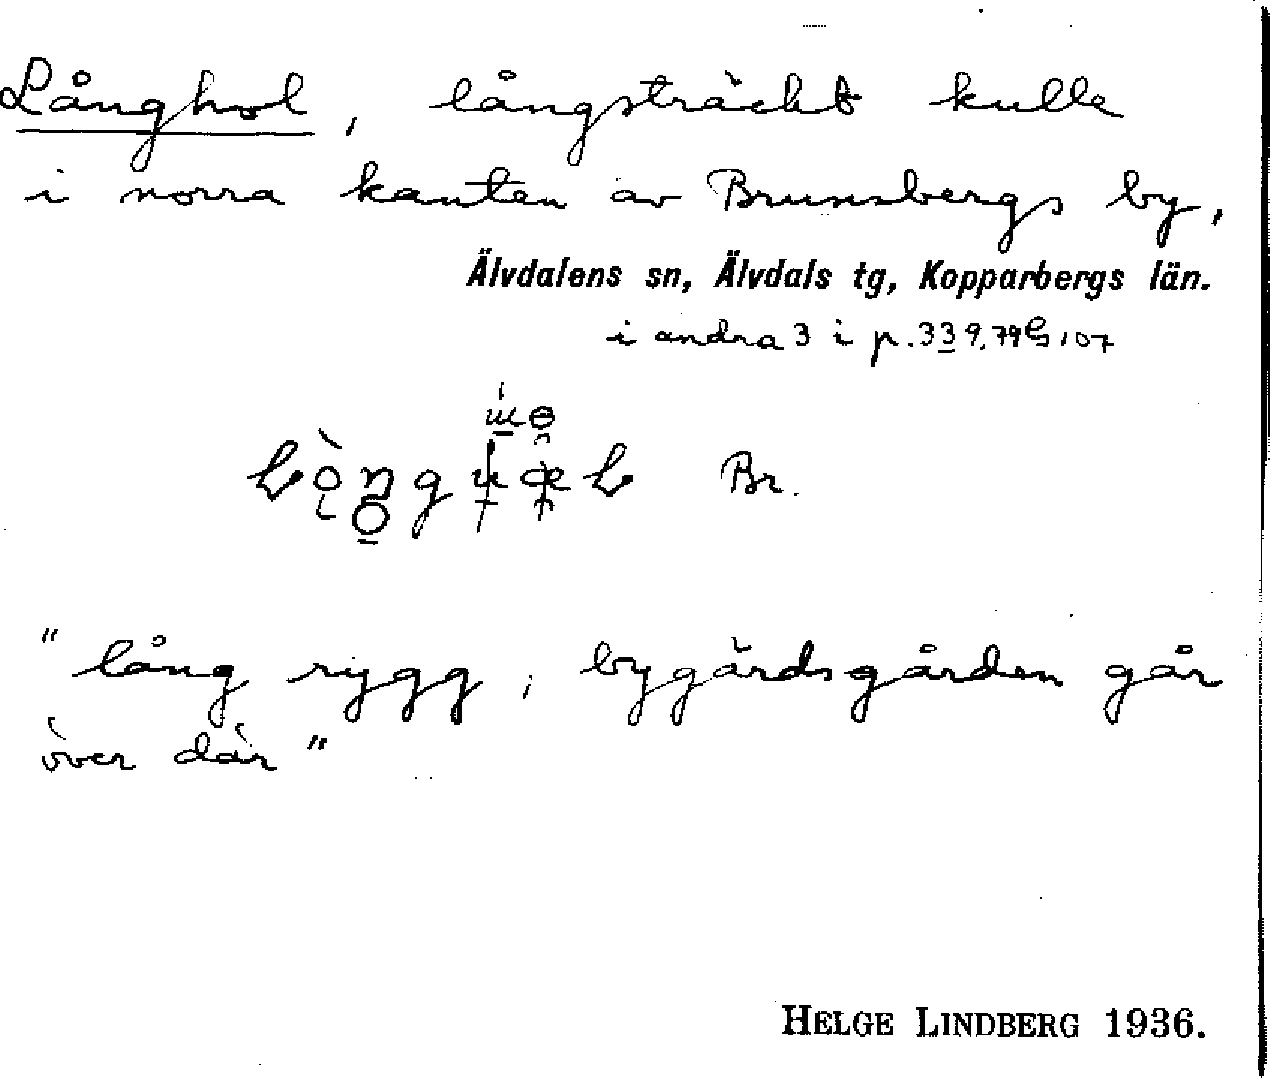 Långhol, långsträckt kulle
i norra kanten av Brunnsbergs by,
Älvdalens sn, Älvdals tg, Kopparbergs län.
i andra 3 i p. 339,79
Br.
"lång rygg, bygärdsgården går
över där"
HELGE LINDBERG 1936.